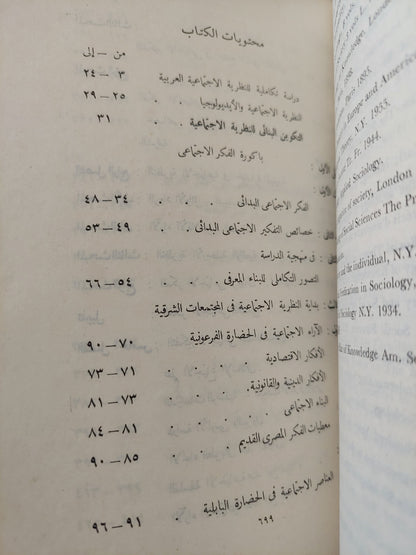 محتويات الكتاب
من - إلى
دراسة تكاملية للنظرية الاجتماعية العربية ٣ - ٢٤
النظرية الاجتماعية والأيديولوجيا . . ٢٥ - ٢٩
التكوين البنائى للنظرية الاجتماعية . . ٣١
باكورة الفكر الاجتماعى
الفكر الاجتماعى البدائى . . ٣٤ - ٤٨
خصائص التفكير الاجتماعى البدائى . . ٤٩ - ٥٣
فى منهجية الدراسة
التصور التكاملى للبناء المعرفى . . ٥٤ - ٦٦
بداية النظرية الاجتماعية فى المجتمعات الشرقية
الآراء الاجتماعية فى الحضارة الفرعونية ٧٠ - ٩٠
الأفكار الاقتصادية . . ٧١ - ٧٣
الأفكار الدينية والقانونية . . ٧٣ - ٨١
البناء الاجتماعى . . ٨١ - ٨٤
معطيات الفكر المصرى القديم . . ٨٥ - ٩٠
العناصر الاجتماعية فى الحضارة البابلية . ٩١ - ٩٦
٦٩٩
London
Paris 1895.
Europe and American
Theory, N.Y. 1933.
Fr. 1944.
Sociology,
of society, London
Social Sciences The Pr
the individual, N.Y.
in Sociology,
Sociology N.Y. 1934.
of Knowledge Am. S